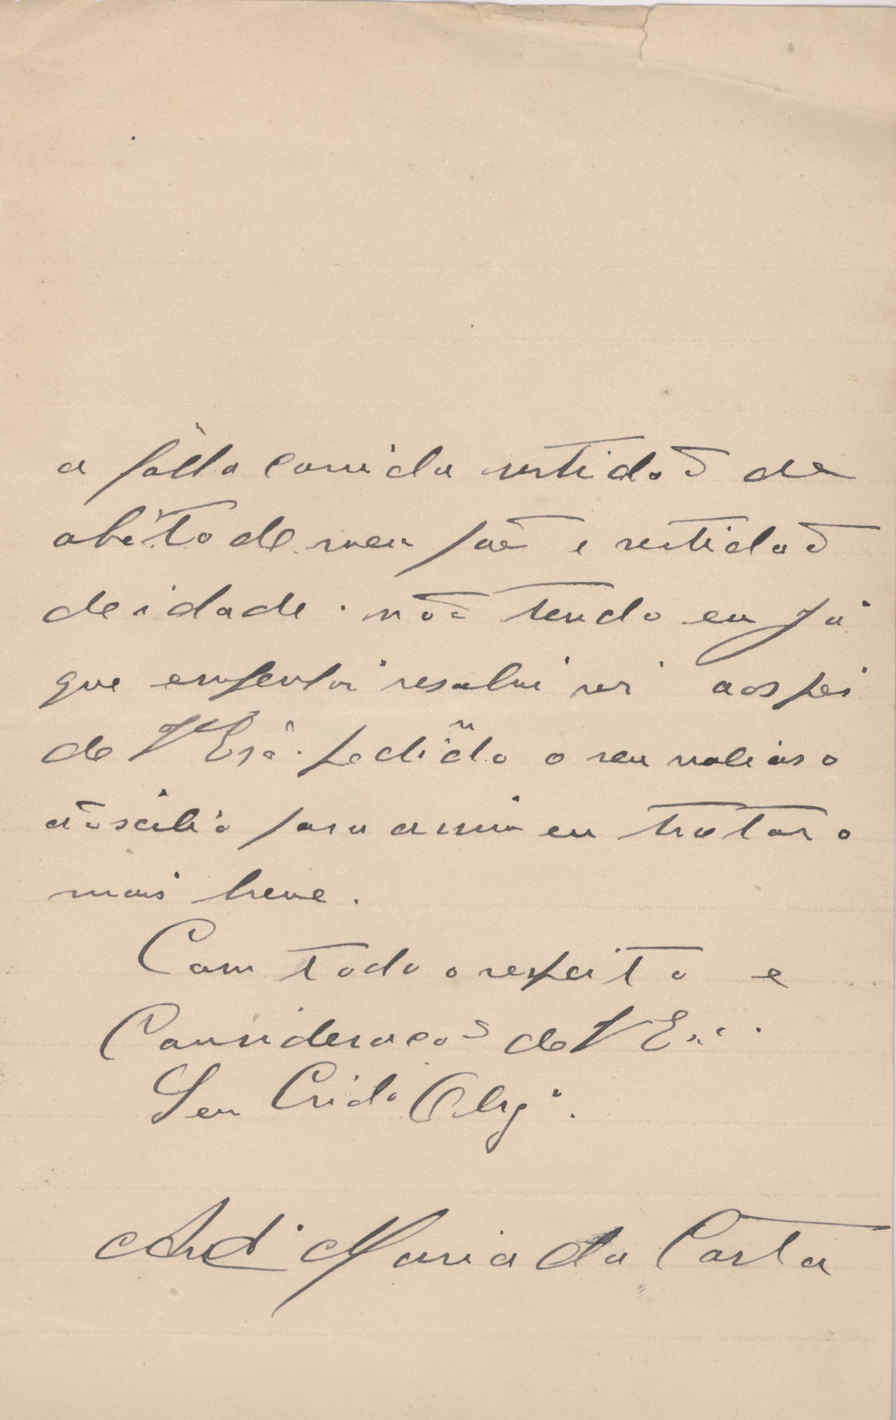 a folha corrida certidaõ de
obito de meu pae e certidaõ
de idade. não tendo eu já
que resolvi vir aos pes
de V Exª. pedindo o seu valioso
auscilio para assim eu tratar o
mais breve.
Com todo o respeito e
Consideracaõ de V Exª.
Seu Cridº Obrgº.
Maria da Costa